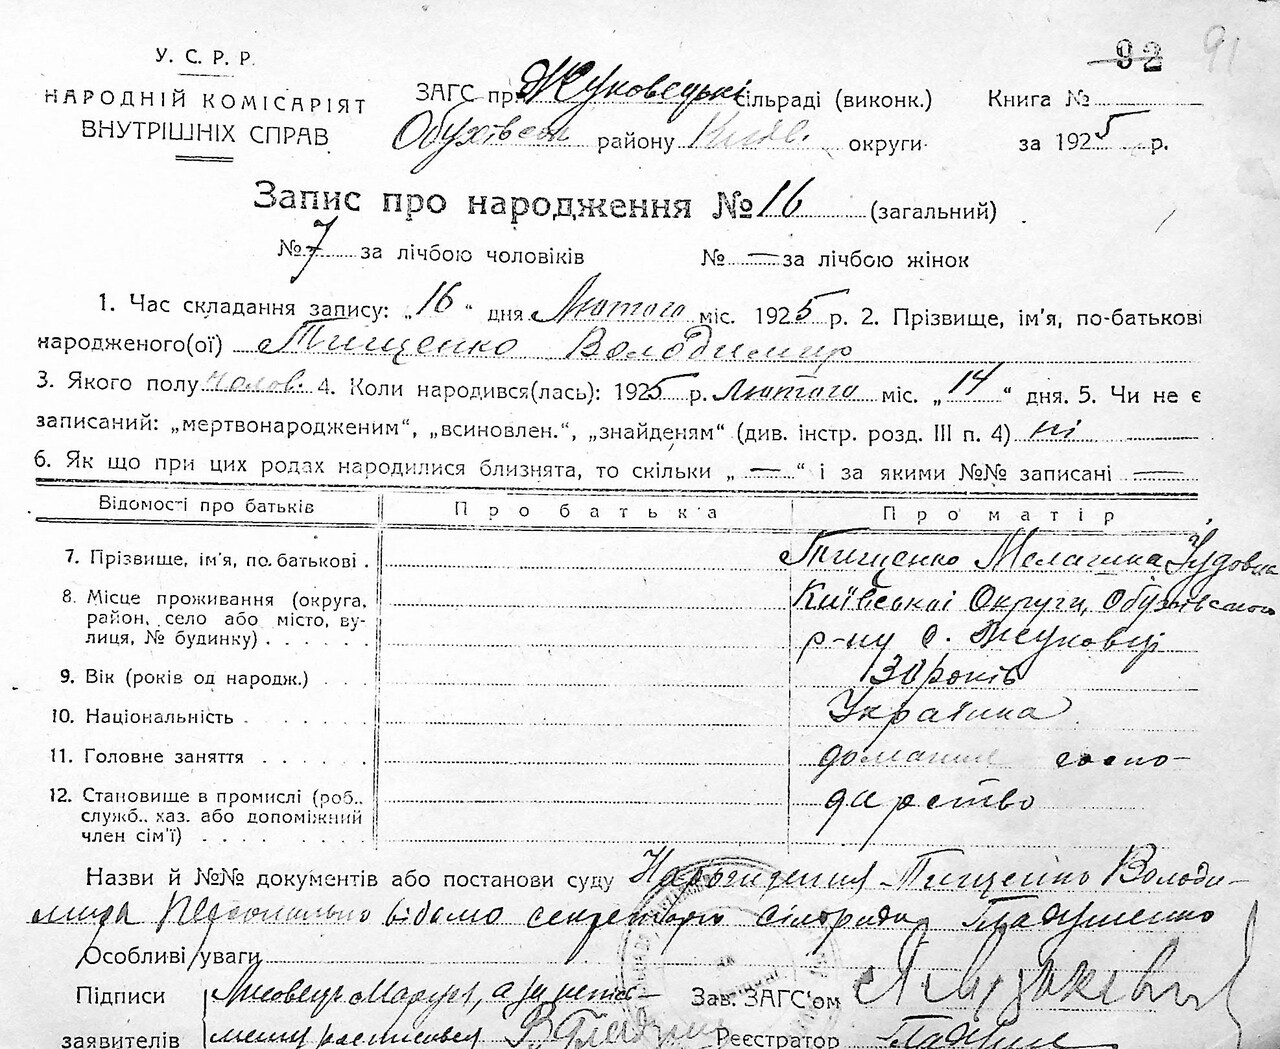 У. С. Р. Р.
НАРОДНІЙ КОМІСАРІЯТ
ВНУТРІШНІХ СПРАВ
ЗАГС пр. Жуковецькі сільраді (виконк.)
Обухівськ району Київ. округи
92
91
Книга №
за 1925 р.
Запис про народження № 16 (загальний)
№ 7 за лічбою чоловіків № — за лічбою жінок
1. Час складання запису: „16“ дня Лютого міс. 1925 р. 2. Прізвище, ім'я, по-батькові
народженого(ої) Тищенко Володимир
3. Якого полу чолов. 4. Коли народився(лась): 1925 р. Лютого міс. „14“ дня. 5. Чи не є
записаний: „мертвонародженим“, „всиновлен.“, „знайденям“ (див. інстр. розд. III п. 4) ні
6. Як що при цих родах народилися близнята, то скільки „—“ і за якими №№ записані —
Відомості про батьків Про батька Про матір
7. Прізвище, ім'я, по. батькові . Тищенко Мелашка
8. Місце проживання (округа, Київськаі Округа, Обухівського
район, село або місто, ву-
лиця, № будинку) . . . . . р-ну с. Жуковці
9. Вік (років од народж.) . . 30 років
10. Національність . . . . . . . Українка
11. Головне заняття . . . . . . домашнє госпо-
12. Становище в промислі (роб.. дарство
служб.. хаз. або допоміжний
член сім'ї) . . . . . . . .
Назви й №№ документів або постанови суду Народження Тищенко Володи-
мира персонально відомо секретарю сілради
Особливі уваги
Підписи Зав. ЗАГС'ом
заявителів Реєстратор